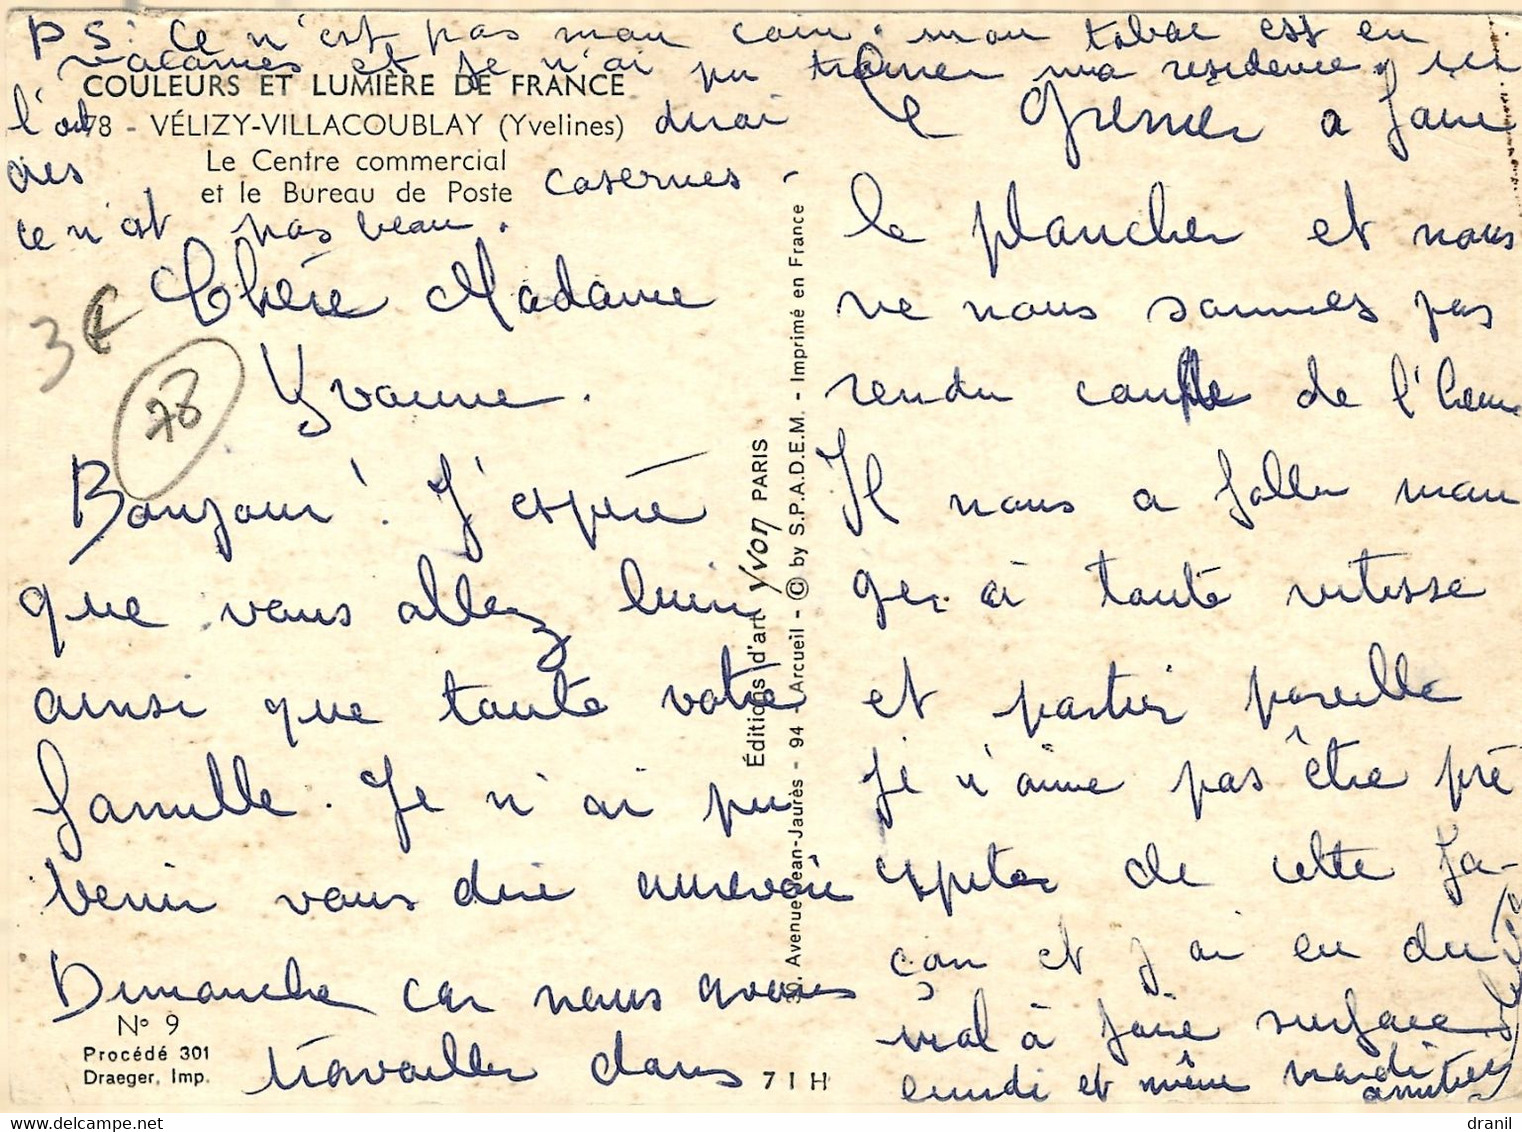 PS: Ce n'est pas mon coin. mon tabac est en
vacances et je n'ai pu trouver ma résidence, ici
COULEURS ET LUMIÈRE DE FRANCE
78 - VÉLIZY-VILLACOUBLAY (Yvelines)
Le Centre commercial
et le Bureau de Poste
l'on dirai
des casernes -
ce n'est pas beau.
3€
78
Chère Madame
Yvonne.
Bonjour! J'espère
que vous allez bien
ainsi que toute votre
famille. Je n'ai pu
venir vous dire aurevoir
Dimanche car nous avons
travailler dans
N° 9
Procédé 301
Draeger, Imp.
71H
Éditions d'art Yvon PARIS
30, Avenue Jean-Jaurès - 94 - Arcueil - © by S.P.A.D.E.M. - Imprimé en France
le Grenier a faire
le plancher et nous
ne nous sommes pas
rendu compte de l'heure
Il nous a fallu man
ger à toute vitesse
et partir pareille
je n'aime pas être pré
cipiter de cette fa-
çon et j'ai eu du
mal à faire surface
lundi et même mardi
amitiés
delcampe.net
dranil